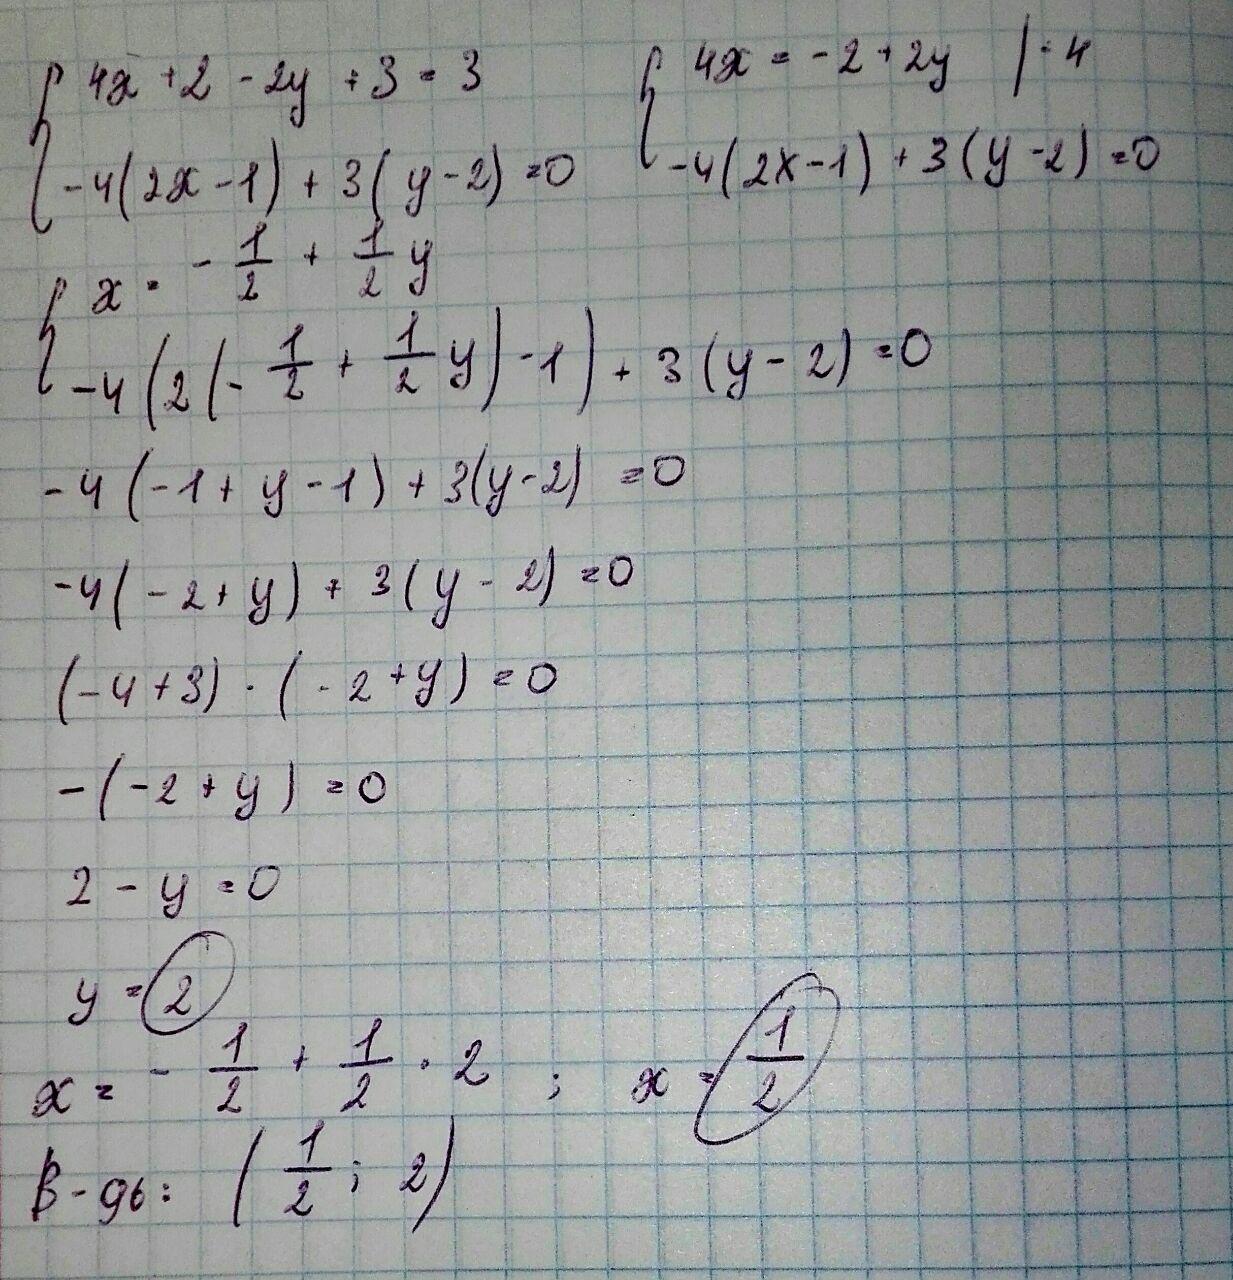 4x + 2 - 2y + 3 = 3
-4(2x - 1) + 3(y - 2) = 0
4x = -2 + 2y | : 4
-4(2x - 1) + 3(y - 2) = 0
x = -1/2 + 1/2 y
-4(2(-1/2 + 1/2 y) - 1) + 3(y - 2) = 0
-4(-1 + y - 1) + 3(y - 2) = 0
-4(-2 + y) + 3(y - 2) = 0
(-4 + 3) · (-2 + y) = 0
-(-2 + y) = 0
2 - y = 0
y = 2
x = -1/2 + 1/2 · 2 ; x = 1/2
В-дь: (1/2 ; 2)